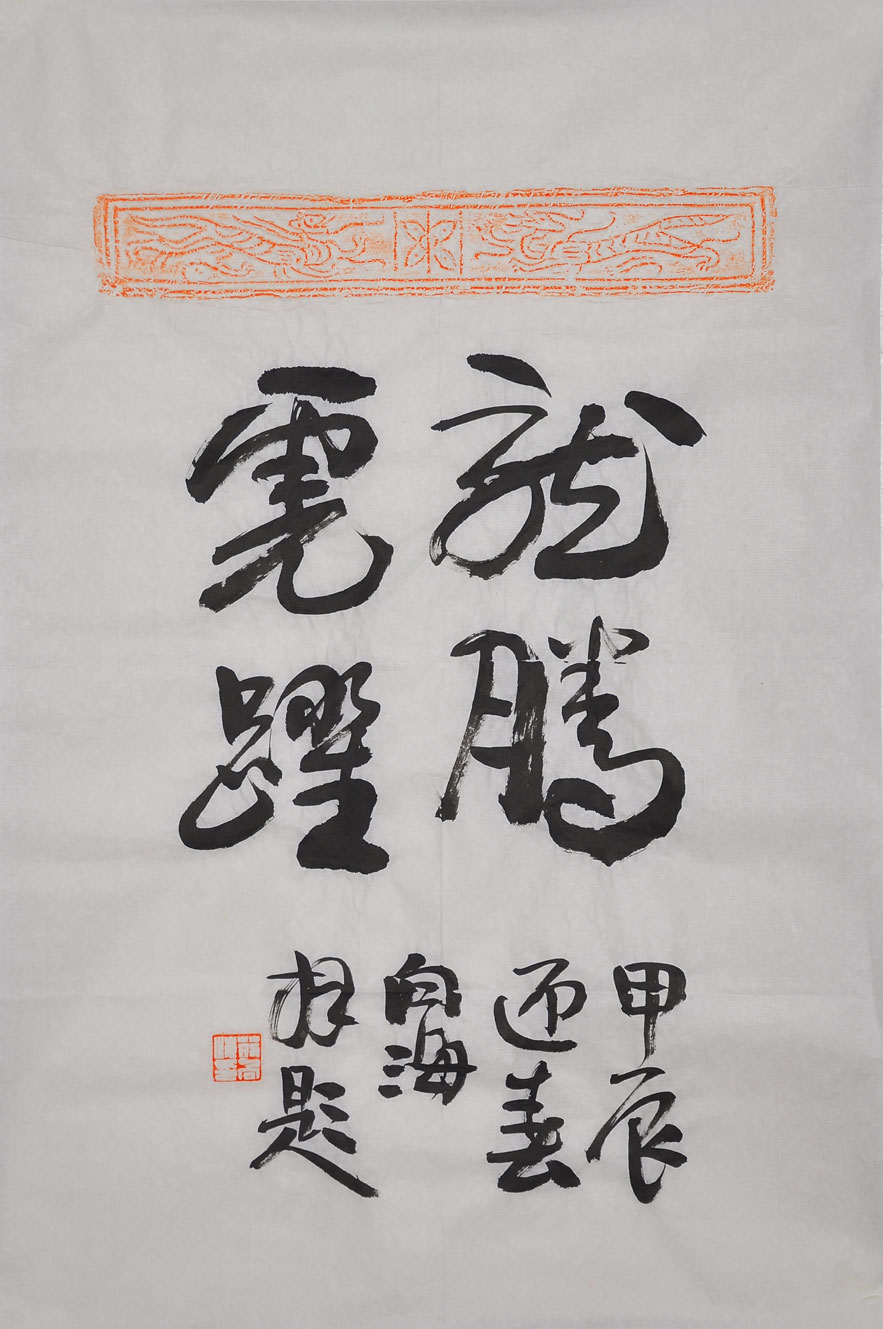 龍騰
虎躍
甲辰
迎春
向海
題